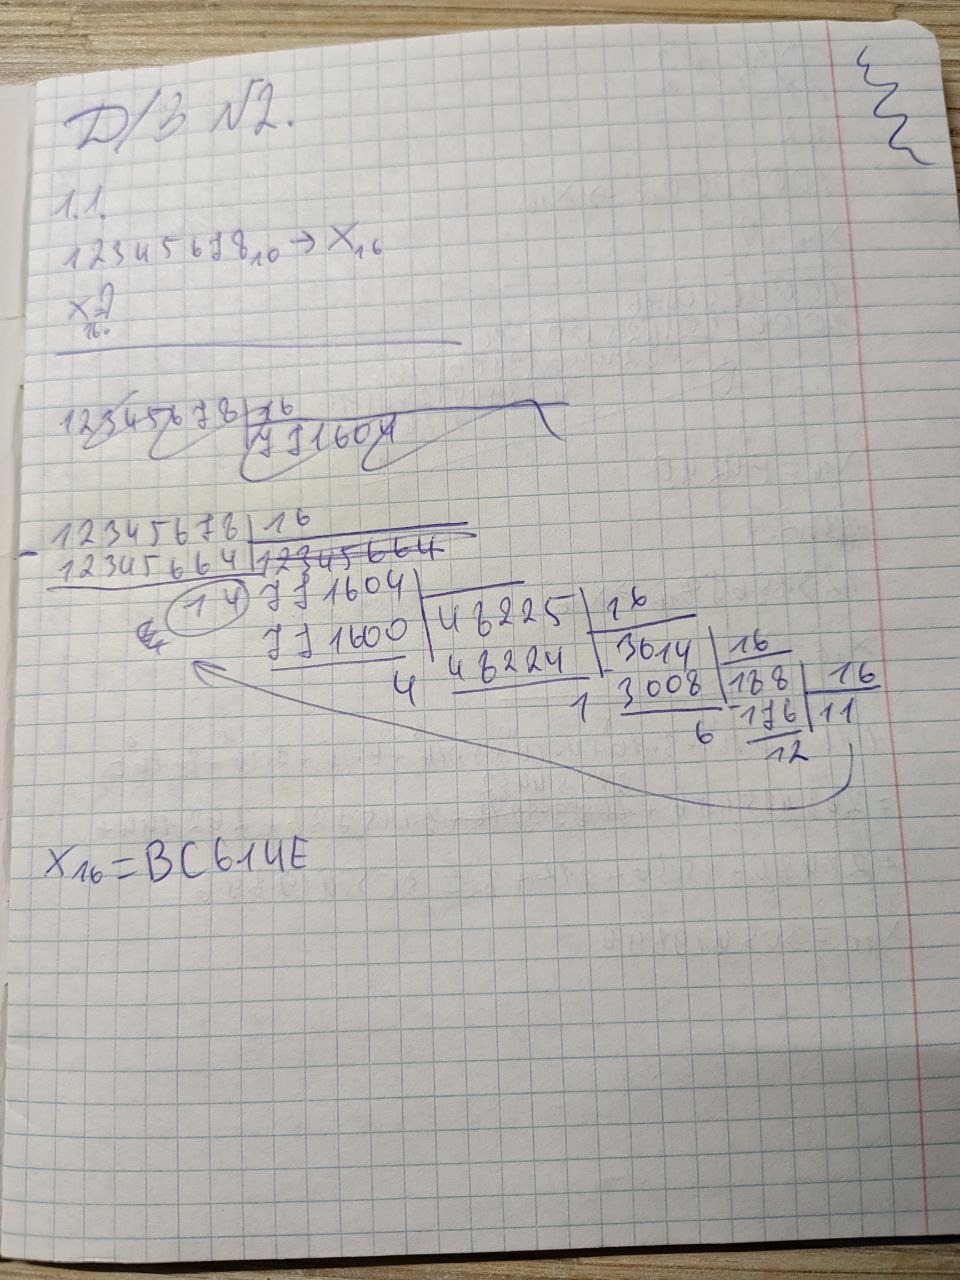 Д/З №2.
1.1.
12345678₁₀ → X₁₆
X₁₆ = ?
12345678 | 16
771604
12345678 | 16
- 12345664 12345664
14 771604
771600 48225 16
4 48224 3014 16
1 3008 188 16
6 -176 11
12
X₁₆ = BC614E